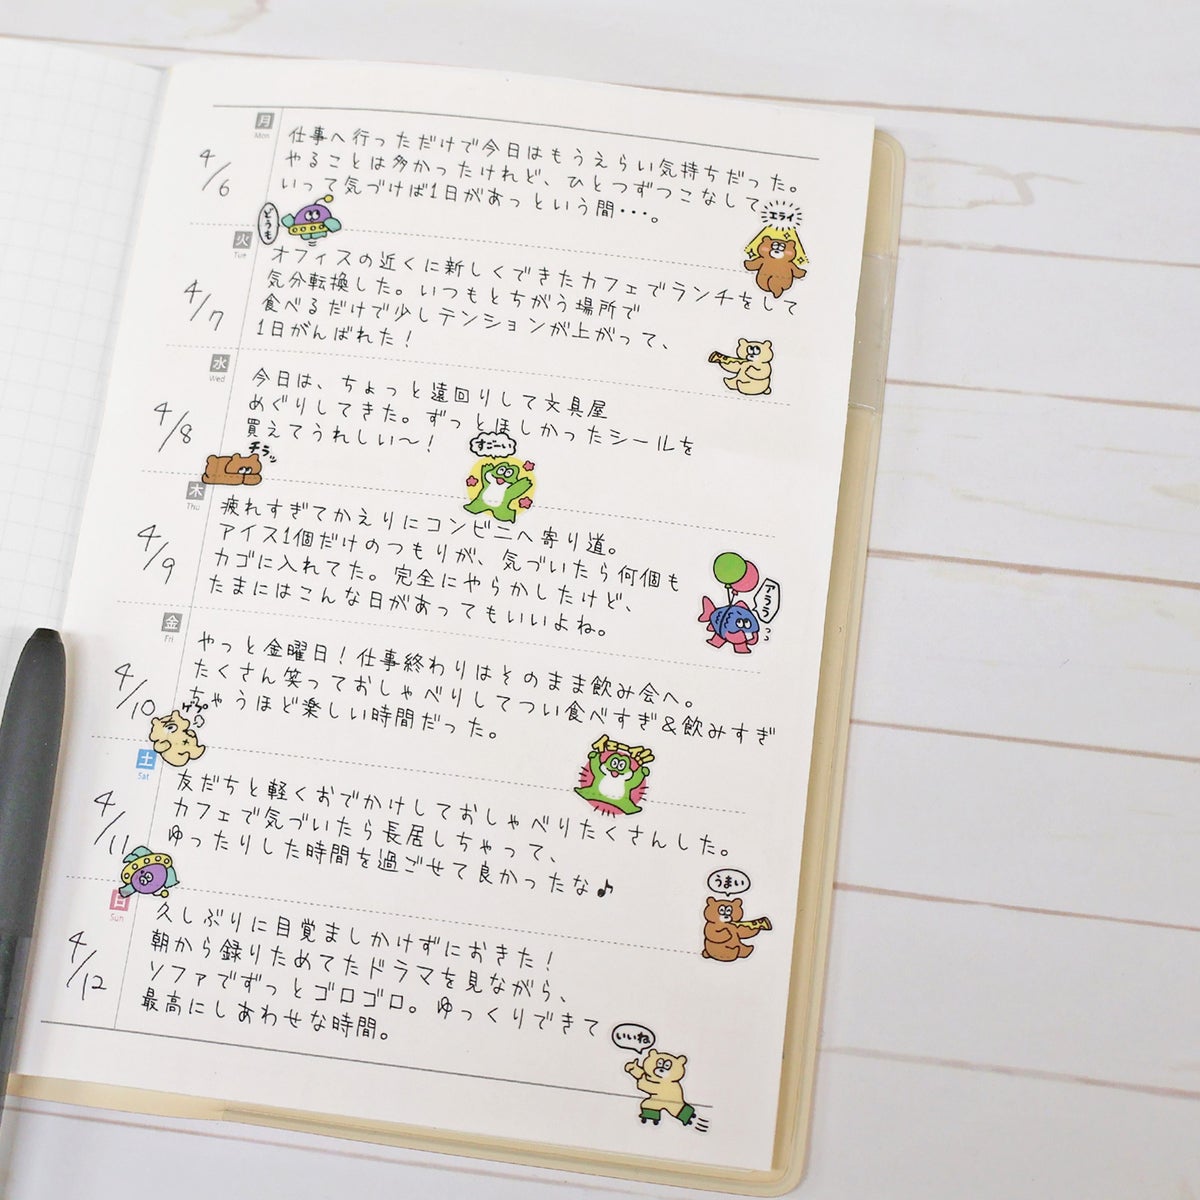 月
Mon
4/6
仕事へ行っただけで今日はもうえらい気持ちだった。
やることは多かったけれど、ひとつずつこなして
いって気づけば1日があっという間・・・。
エライ
どうも
火
Tue
4/7
オフィスの近くに新しくできたカフェでランチをして
気分転換した。いつもとちがう場所で
食べるだけで少しテンションが上がって、
1日がんばれた！
水
Wed
4/8
今日は、ちょっと遠回りして文具屋
めぐりしてきた。ずっとほしかったシールを
買えてうれしい〜！
すごーい
チラッ
木
Thu
4/9
疲れすぎてかえりにコンビニへ寄り道。
アイス1個だけのつもりが、気づいたら何個も
カゴに入れてた。完全にやらかしたけど、
たまにはこんな日があってもいいよね。
アララ
金
Fri
4/10
やっと金曜日！仕事終わりはそのまま飲み会へ。
たくさん笑っておしゃべりしてつい食べすぎ&飲みすぎ
ちゃうほど楽しい時間だった。
ゲプ
イェーイ!!
土
Sat
4/11
友だちと軽くおでかけしておしゃべりたくさんした。
カフェで気づいたら長居しちゃって、
ゆったりした時間を過ごせて良かったな♪
うまい
日
Sun
4/12
久しぶりに目覚ましかけずにおきた！
朝から録りためてたドラマを見ながら、
ソファでずっとゴロゴロ。ゆっくりできて
最高にしあわせな時間。
いいね